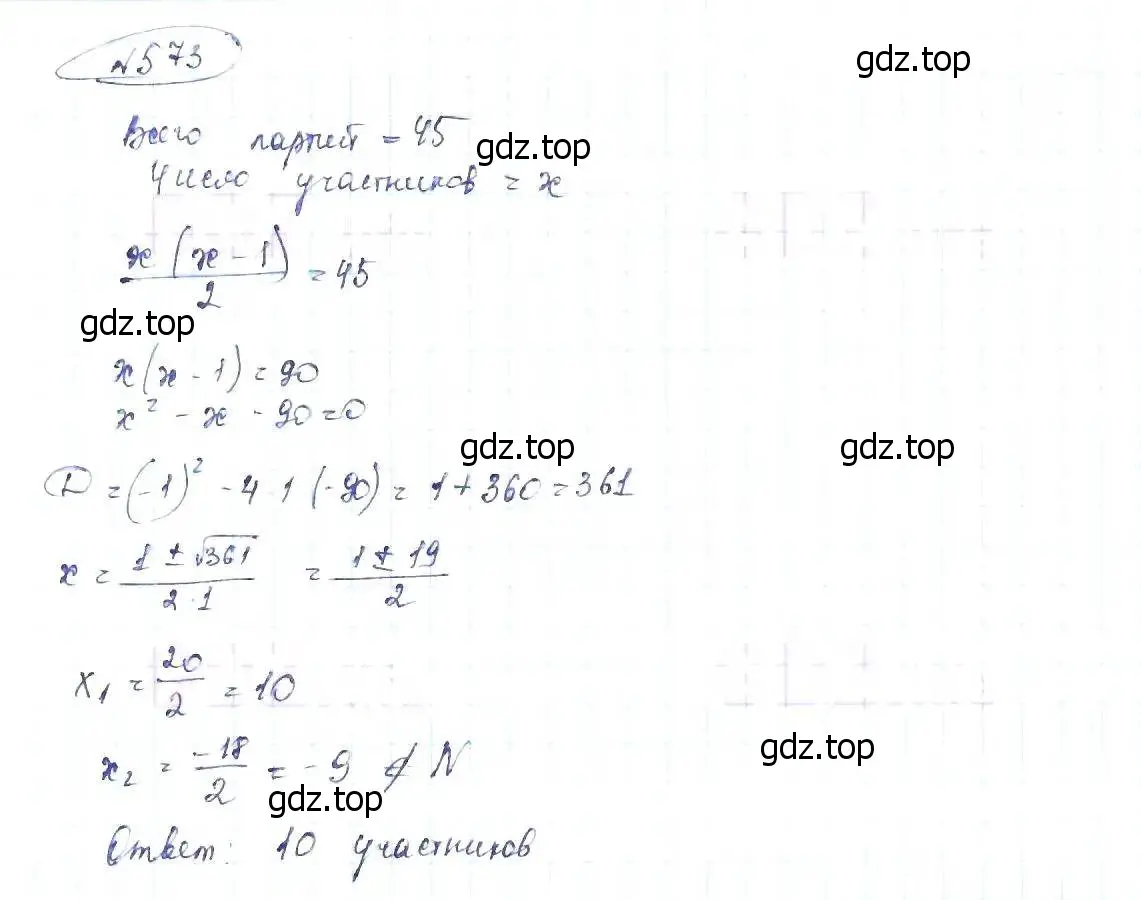 №573
gdz.top
Всего партий = 45
gdz.top
Число участников = x
x(x - 1)/2 = 45
gdz.top
x(x - 1) = 90
x² - x - 90 = 0
gdz.top gdz.top
D = (-1)² - 4 · 1 (-90) = 1 + 360 = 361
x = (1 ± √361)/(2 · 1) = (1 ± 19)/2
x₁ = 20/2 = 10
gdz.top
x₂ = -18/2 = -9 ∉ N
gdz.top
Ответ: 10 участников